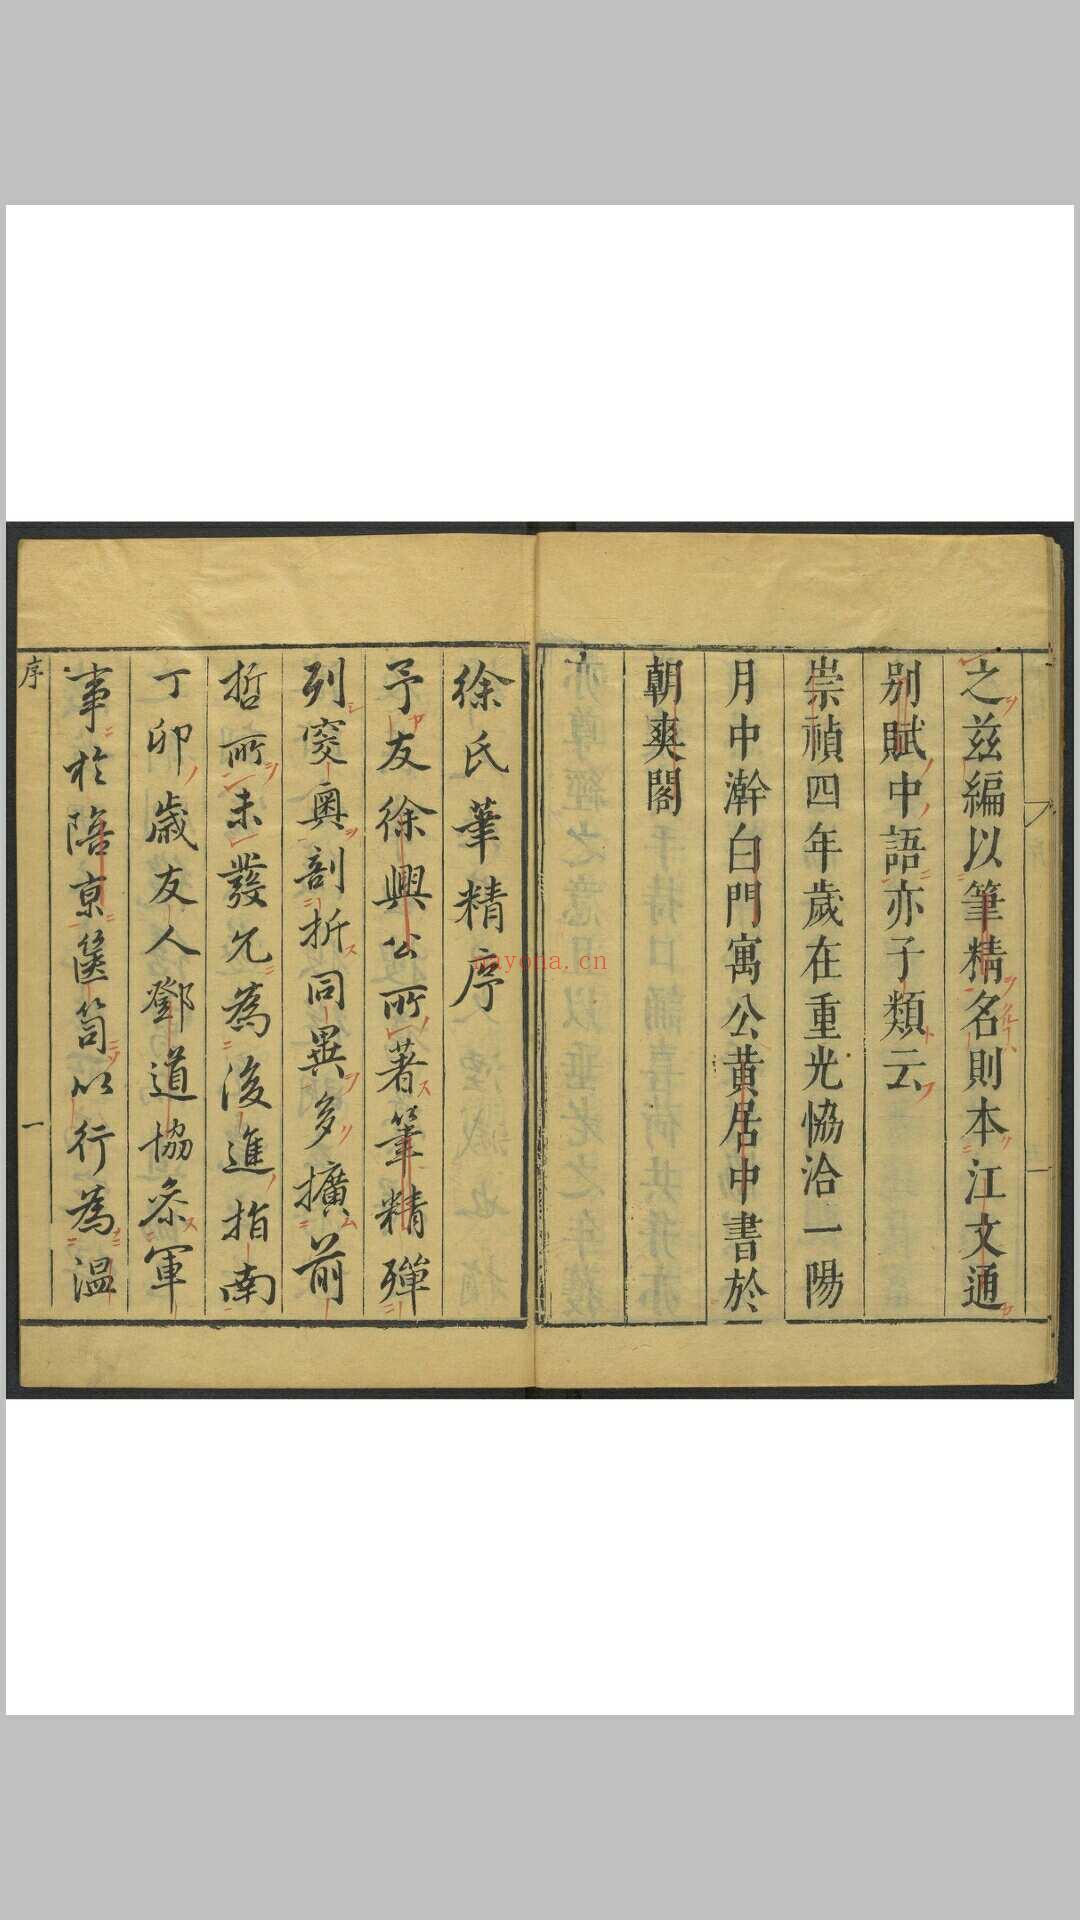 之茲編以筆精名則本江文通
别賦中語亦子類云
崇禎四年歲在重光恊洽一陽
月中澣白門寓公黄居中書於
朝爽閣
徐氏筆精序
予友徐興公所著筆精殫
列窔奧剖析同異多擴前
哲所未發允為後進指南
丁卯歲友人鄧道協叅軍
事於陪京篋笥以行為温
序
一
wayona.cn